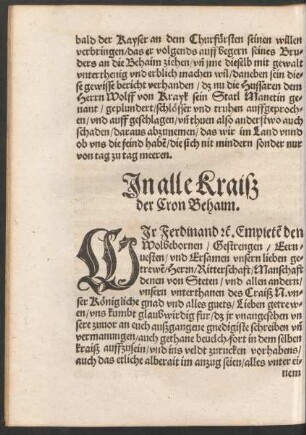 bald der Kayser an dem Churfürsten seinen willen
verbringen/das er volgends auff begern seines Bru
ders an die Behaim ziehen/vñ jme dieselb mit gewalt
vnterthenig vnd erblich machen wil/daneben sein die
se gewisse bericht verhanden/dz nu die Hussaren dem
Herrn Wolff von Krayk sein Statl Manetin ge
nant/geplundert/schlösser vnd truhen auffgeproch
en/vnd auff geschlagen/vñ thuen also anderstwo auch
schaden/daraus abzunemen/das wir im Land vnnd
ob vns die feind habē/die sich nit mindern sonder nur
von tag zu tag meeren.
In alle Kraiß
der Cron Behaim.
WIr Ferdinand ꝛc. Empietē den
Wolgebornen/Gestrengen/Ern
uesten/vnd Ersamen vnsern lieben ge
trewē/Herrn/Ritterschafft/Manschafft
denen von Steten/vnd allen andern/
vnsern vnterthanen des Craiß N. vn
ser Königliche gnad vnd alles guets/Lieben getrew
en/vns kumbt glaubwirdig für/dz jr vnangesehen vn
sere zuuor an euch außgangene gnedigiste schreiben vñ
vermanungen/auch gethane beuelch/fort in dem selben
kraiß auffzusein/vnd ins veldt zurucken vorhabens/
auch das etliche alberait im anzug seien/alles vnter ei
nem